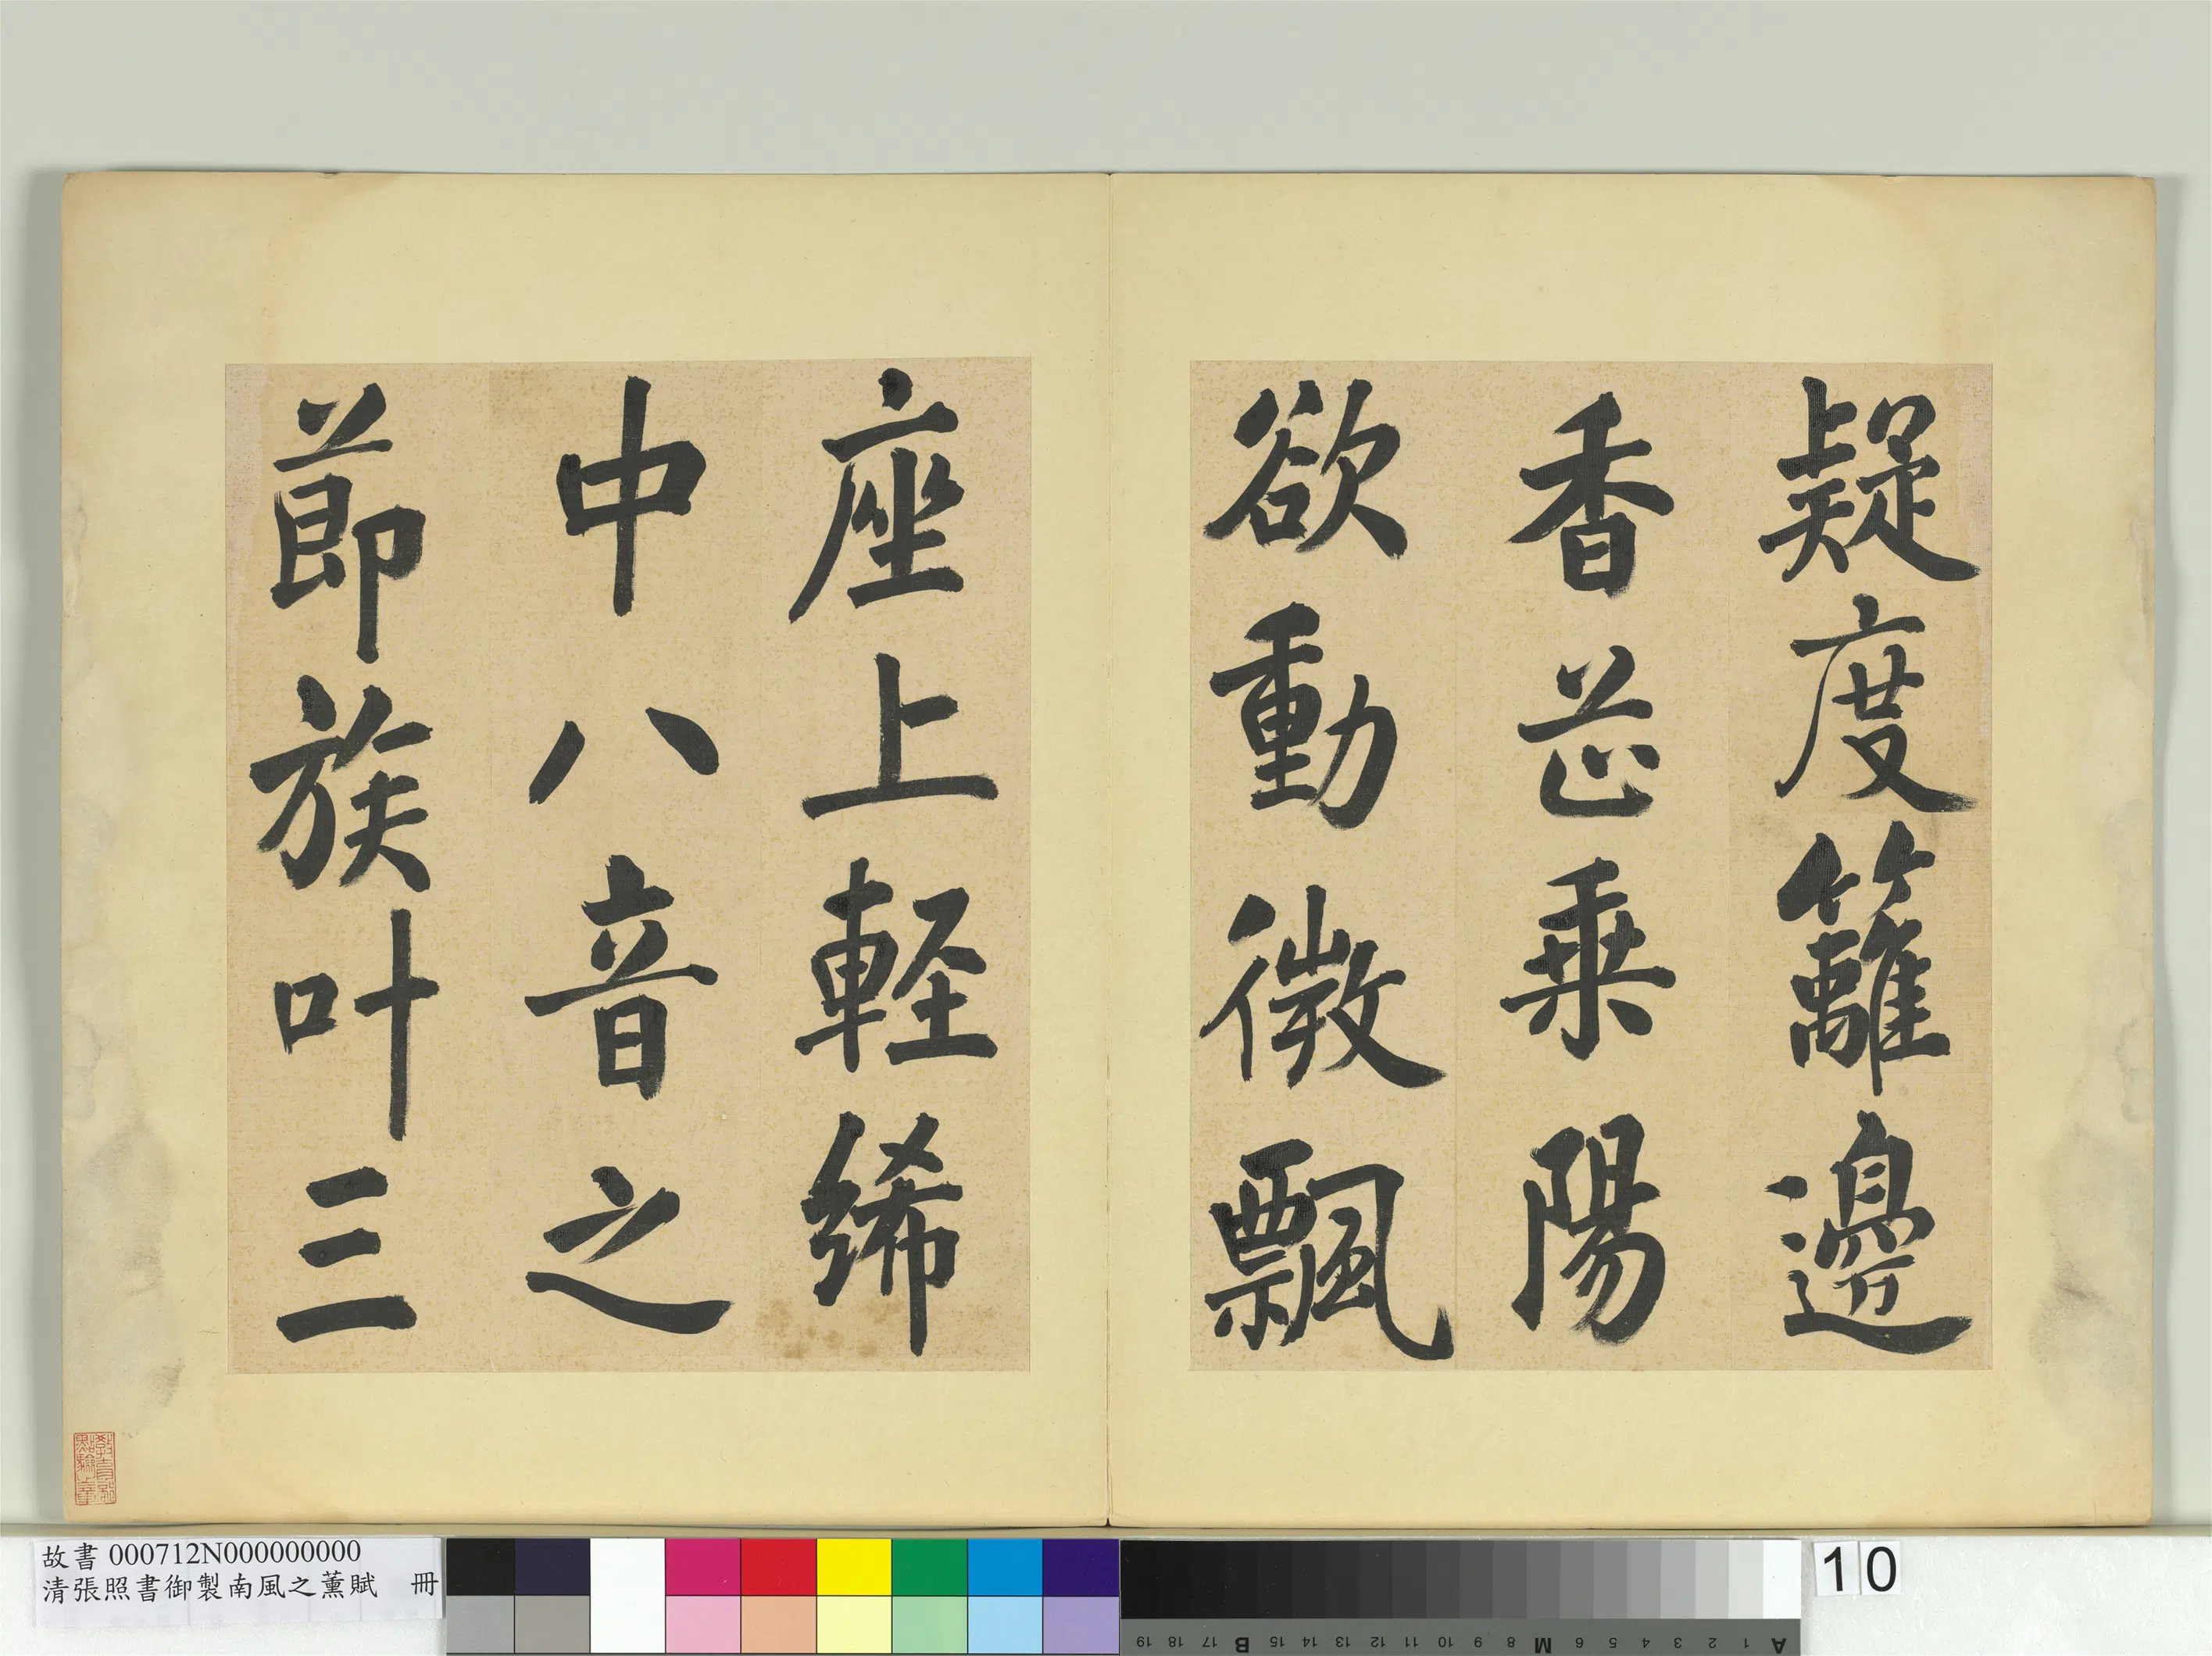 疑度籬邊
香芷乗陽
欲動微飄
座上軽絺
中八音之
莭族叶三
故書 000712N000000000
清張照書御製南風之薰賦 冊
10
A 1 2 3 4 5 6 M 8 9 10 11 12 13 14 15 B 17 18 19